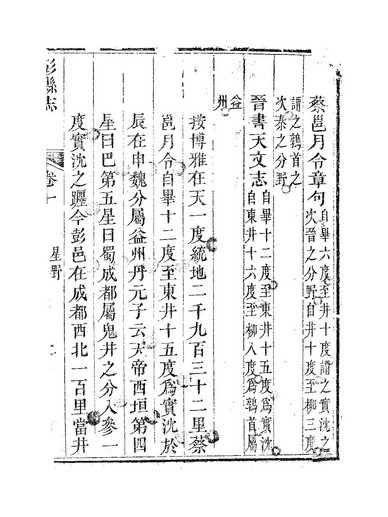 蔡邕月令章句自畢六度至井十度謂之實沈之
次晉之分野自井十度至柳三度
謂之鶉首之
次秦之分野
晉書天文志自畢十二度至東井十五度為實沈
自東井十六度至柳八度為鶉首屬
益
州
按博雅在天一度統地二千九百三十二里蔡
邕月令自畢十二度至東井十五度爲實沈於
辰在申魏分屬益州丹元子云天帝西垣第四
星曰巴第五星曰蜀成都屬鬼井之分入參一
度實沈之躔今彭邑在成都西北一百里當井
彭縣志
卷一
星野